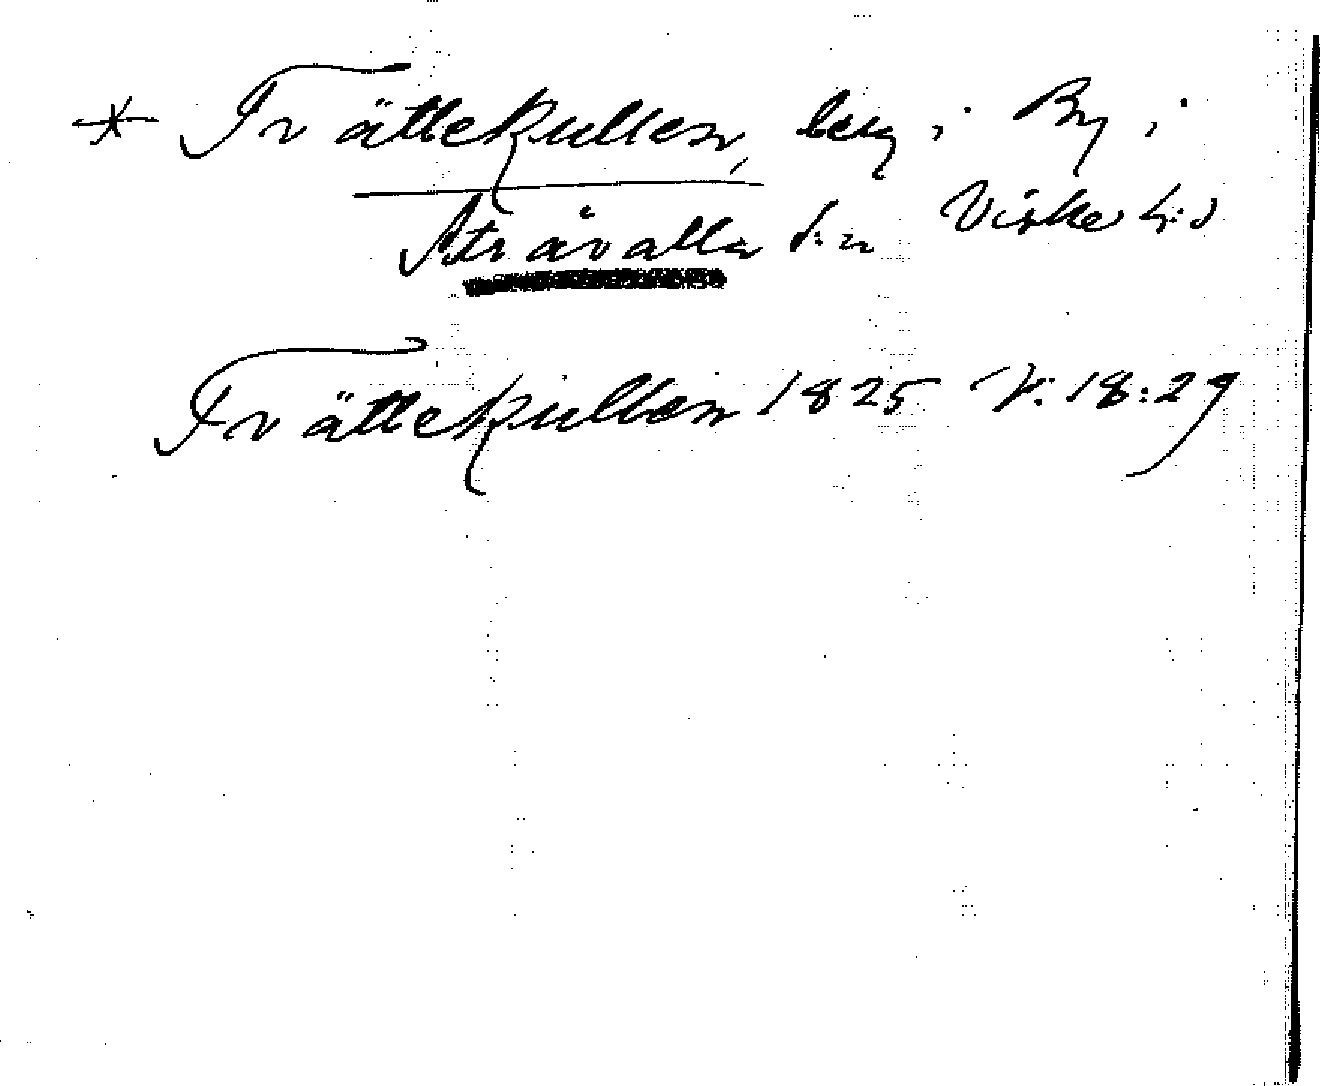 * Trättekullen, berg i By i
Stråvalla s:n Viske h:d
Trättekullen 1825 V. 18:29